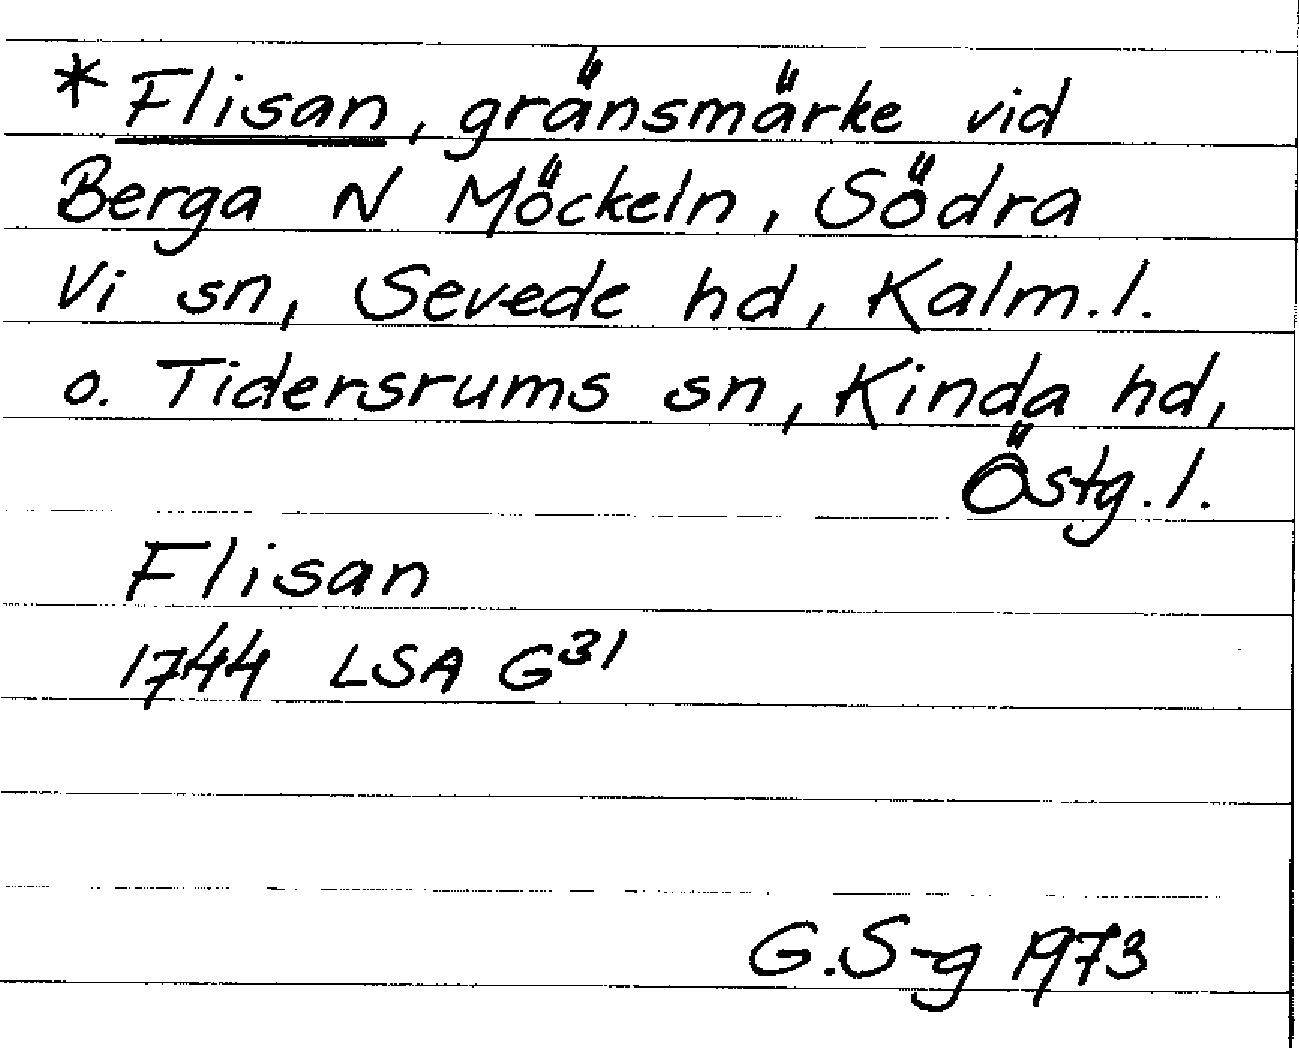 * Flisan, gränsmärke vid
Berga N Möckeln, Södra
Vi sn, Sevede hd, Kalm.l.
o. Tidersrums sn, Kinda hd,
Östg.l.
Flisan
1744 LSA G31
G.S-g 1973